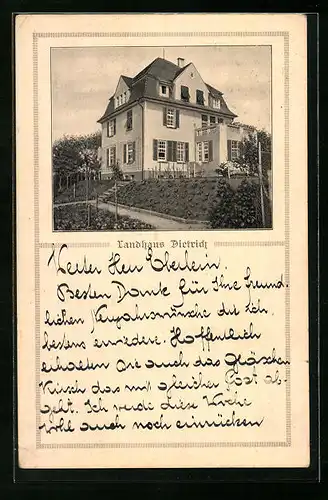 Landhaus Dietrich
Werter Herr Eberlein,
Besten Dank für Ihre freund-
lichen Neujahrswünsche die ich
bestens erwidere. Hoffentlich
erhalten Sie auch das Gläschen
Kirsch das mit gleicher Post ab-
geht. Ich werde diese Woche
wohl auch noch einrücken